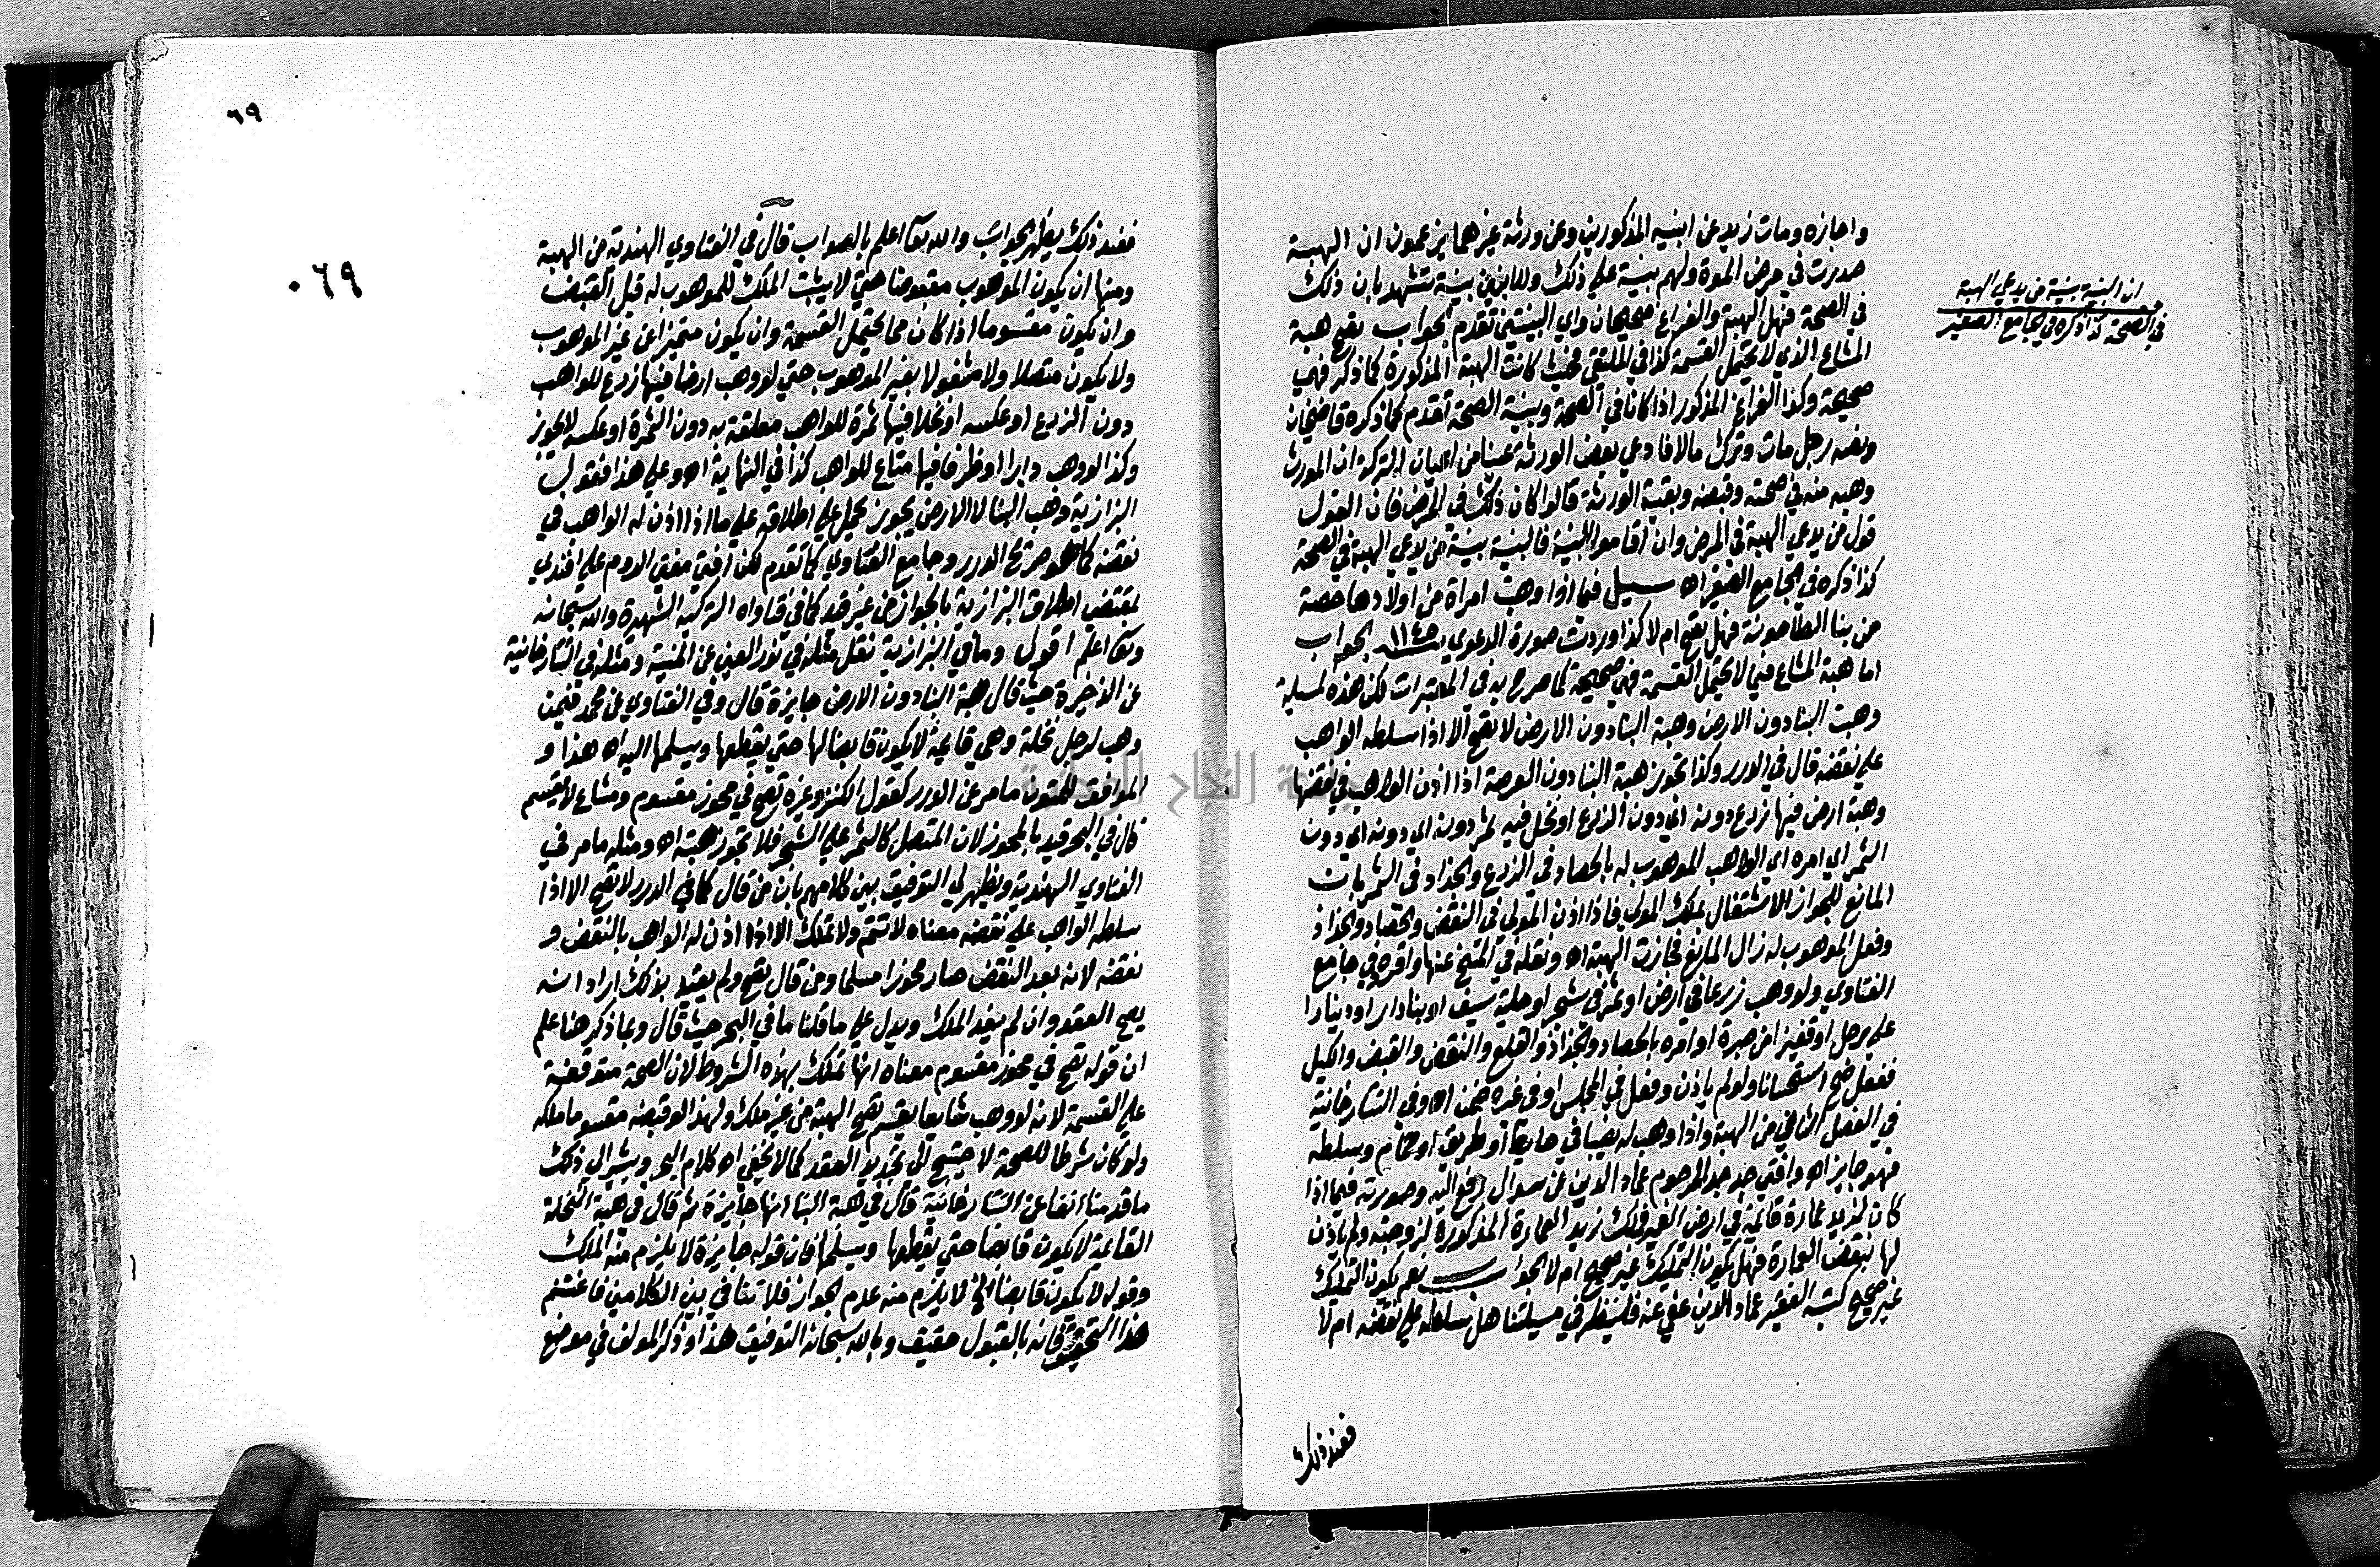 واجازه ومات زيد عن ابنيه المذكورين وعن ورثة غيرهما يزعمون ان الهبة
صدرت في مرض الموة ولهم بينة علي ذلك وللابنين بينة تشهد بان ذلك
في الصحة فهل الهبة والفراغ صحيحان واي البينتين تقدم الجواب تصح هبة
المشاع الذي لا يحتمل القسمة كذا في الملتقي فحيث كانت الهبة المذكورة كما ذكر فهي
صحيحة وكذا الفراغ المذكور اذا كانا في الصحة وبينة الصحة تقدم كما ذكره قاضيخان
ونصه رجل مات وترك مالا فادعي بعض الورثة عينا من اعيان التركة ان المورث
وهبه منه في صحته وقبضه وبقية الورثة قالوا كان ذلك في المرض فان القول
قول من يدعي الهبة في المرض وان اقاموا البينة فالبينة بينة من يدعي الهبة في الصحة
كذا ذكره في الجامع الصغير اه سيل فيما اذا وهبت امراة من اولادها حصة
من بنا الطاحونة فهل تصح ام لا كذا وردت صورة الدعوي ١١٤٥ الجواب
اما هبة المشاع فيما لا يحتمل القسمة فهي صحيحة كما صرح به في المعتبرات لكن هذه لمسيلة
وهبت البنا دون الارض وهبة البنا دون الارض لا تصح الا اذا سلطه الواهب
علي نقضه قال في الدرر وكذا تجوز هبة البنا دون العرصة اذا اذن الواهب في نقضها
وهبة ارض فيها زرع دونه اي دون الزرع او نخل فيه ثمر دونه اي دونه اي دون
الثمر اي امره اي الواهب الموهوب له بالحصاد في الزرع والجذاذ في الثمر بان
المانع للجواز الاشتغال بملك المولي فاذا اذن المولي في النقض والحصاد والجذاذ
وفعل الموهوب له زال المانع فجازت الهبة اه ونقله في المنح عنها واقره في جامع
الفتاوي ولو وهب زرعا في ارض او ثمرا في شجر او حلية سيف او بنا دار او دينارا
علي رجل او قفيزا من صبرة او امره بالحصاد والجذاذ والقلع والنقض والقبض والكيل
ففعل صح استحسانا ولو لم ياذن وفعل في المجلس او في غيره ضمن اه وفي التتارخانية
في الفصل الثاني من الهبة واذا وهب له نصيبا في حايط او طريق او حمام وسلطه
فهو جايز اه وافتي جد جد المرحوم عماد الدين عن سوال رفع اليه وصورته فيما اذا
كان لزيد عمارة قايمة في ارض الغير فملك زيد العمارة المذكورة لزوجته ولم ياذن
لها بنقض العمارة فهل يكون التمليك غير صحيح ام لا الجواب نعم يكون التمليك
غير صحيح كتبه الفقير عماد الدين عفي عنه فلينظر في مسيلتنا هل سلطه علي نقضه ام لا
فعند ذلك
ان البينة بينة من يدعي الهبة
في الصحة كذا ذكره في الجامع الصغير
٦٩
٠٦٩
فعند ذلك يظهر الجواب والله تعا اعلم بالصواب قال في الفتاوي الهندية من الهبة
ومنها ان يكون الموهوب مقبوضا حتي لا يثبت الملك للموهوب له قبل القبض
وان يكون مقسوما اذا كان مما يحتمل القسمة وان يكون متميزا عن غير الموهوب
ولا يكون متصلا ولا مشغولا بغير الموهوب حتي لو وهب ارضا فيها زرع للواهب
دون الزرع او عكسه او نخلا فيها ثمرة للواهب معلقة به دون الثمرة او عكسه لا يجوز
وكذا لو وهب دارا او ظرفا فيها متاع للواهب كذا في النهاية اه وعلي هذا فقول
البزازية وهب البنا لا الارض يجوز يحمل علي اطلاقه علي ما اذا اذن له الواهب في
نقضه كما هو صريح الدرر وجامع الفتاوي كما تقدم لكن افتي مفتي الروم علي افندي
بمقتضي اطلاق البزازية بالجواز من غير قيد كما في فتاواه التركية الشهيرة والله سبحانه
وتعا اعلم اقول وما في البزازية نقل مثله في نور العين عن المنية ومثله في التتارخانية
عن الذخيرة حيث قال هبة البنا دون الارض جايزة قال وفي الفتاوي عن محمد فيمن
وهب لرجل نخلة وهي قايمة لا يكون قابضا لها حتي يقطعها ويسلمها اليه اه هذا و
الموافق للمتون ما مر عن الدرر كقول الكنز وغيره تصح في محوز مقسوم ومشاع لا يقسم
قال في البحر قيد بالمحوز لان المتصل كالثمر علي الشجر فلا تجوز هبته اه ومثله ما مر في
الفتاوي الهندية ويظهر لي التوفيق بين كلامهم بان من قال كما في الدرر لا تصح الا اذا
سلطه الواهب علي نقضه معناه لا تتم ولا تملك الا اذا اذن له الواهب بالنقض و
نقضه لانه بعد النقض صار محوزا مسلما ومن قال تصح ولم يقيد بذلك اراد انه
يصح العقد وان لم يفد الملك ويدل علي ما قلنا ما في البحر حيث قال وبما ذكر هنا علم
ان قوله تصح في محوز مقسوم معناه انها تملك بهذه الشروط لان الصحة متوقفة
علي القسمة لانه لو وهب شايعا يقسم تصح الهبة من غير ملك ولهذا لو قبضه مقسوما ملكه
ولو كان شرطا للصحة لاحتيج الي تجديد العقد كما لا يخفي اه كلام البحر ويشير الي ذلك
ما قدمنا انفا عن التتارخانية قال في هبة البنا انها جايزة ثم قال في هبة النخلة
القايمة لا يكون قابضا حتي يقطعها ويسلمها فان قوله جايزة لا يلزم منه الملك
وقوله لا يكون قابضا الخ لا يلزم منه عدم الجواز فلا تنافي بين الكلامين فاغتنم
هذا التحقيق فانه بالقبول حقيق وبالله سبحانه التوفيق هذا وذكر المولف في موضع